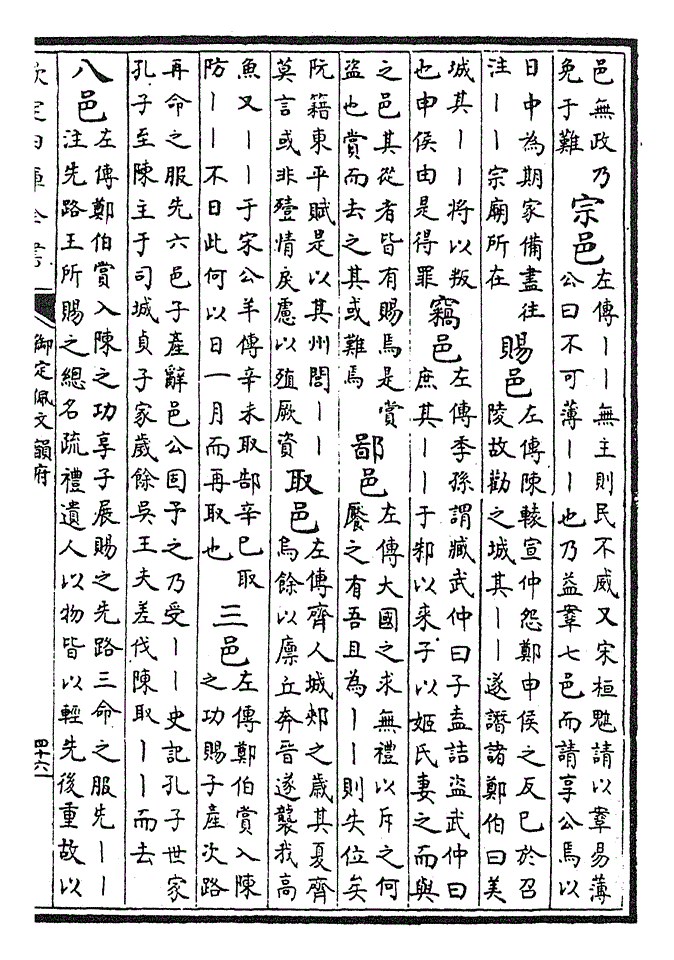 邑無政乃
免于難
宗邑
左傳丨丨無主則民不威又宋桓魋請以鞌易薄
公曰不可薄丨丨也乃益鞌七邑而請享公焉以
日中為期家備盡往
注丨丨宗廟所在
賜邑
左傳陳轅宣仲怨鄭申侯之反已於召
陵故勸之城其丨丨遂譖諸鄭伯曰美
城其丨丨將以叛
也申侯由是得罪
竊邑
左傳季孫謂臧武仲曰子盍詰盜武仲曰
庶其丨丨于邾以來子以姬氏妻之而與
之邑其從者皆有賜焉是賞
盜也賞而去之其或難焉
鄙邑
左傳大國之求無禮以斥之何
饜之有吾且為丨丨則失位矣
阮籍東平賦是以其州閭丨丨
莫言或非殪情戾慮以殖厥資
取邑
左傳齊人城郟之歲其夏齊
烏餘以廩丘奔晉遂襲我高
魚又丨丨于宋公羊傳辛未取郜辛巳取
防丨丨不日此何以日一月而再取也
三邑
左傳鄭伯賞入陳
之功賜子產次路
再命之服先六邑子產辭邑公固予之乃受丨丨史記孔子世家
孔子至陳主于司城貞子家歲餘吳王夫差伐陳取丨丨而去
八邑
左傳鄭伯賞入陳之功享子展賜之先路三命之服先丨丨
注先路王所賜之總名疏禮遺人以物皆以輕先後重故以
欽定四庫全書
御定佩文韻府
四十六